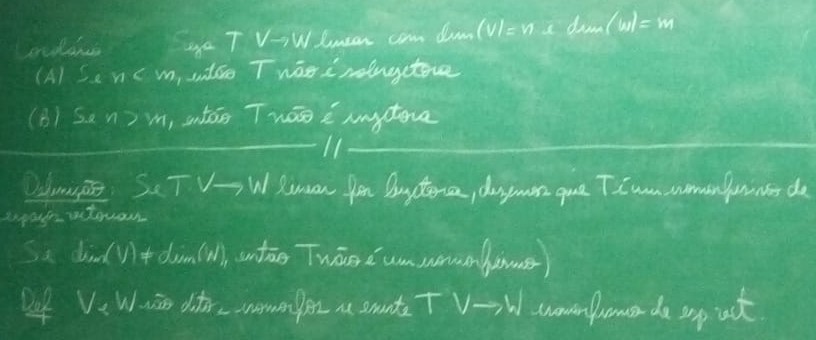 Corolário Seja T V→W linear com dim(V)=n e dim(W)=m
(A) Se n < m, então T não é sobrejetora
(B) Se n > m, então T não é injetora
//
Definição: Se T: V→W linear for bijetora, dizemos que T é um isomorfismo de
espaços vetoriais
Se dim(V) ≠ dim(W), então T não é um isomorfismo)
Def V e W são ditos isomorfos se existe T V→W isomorfismo de esp vet.